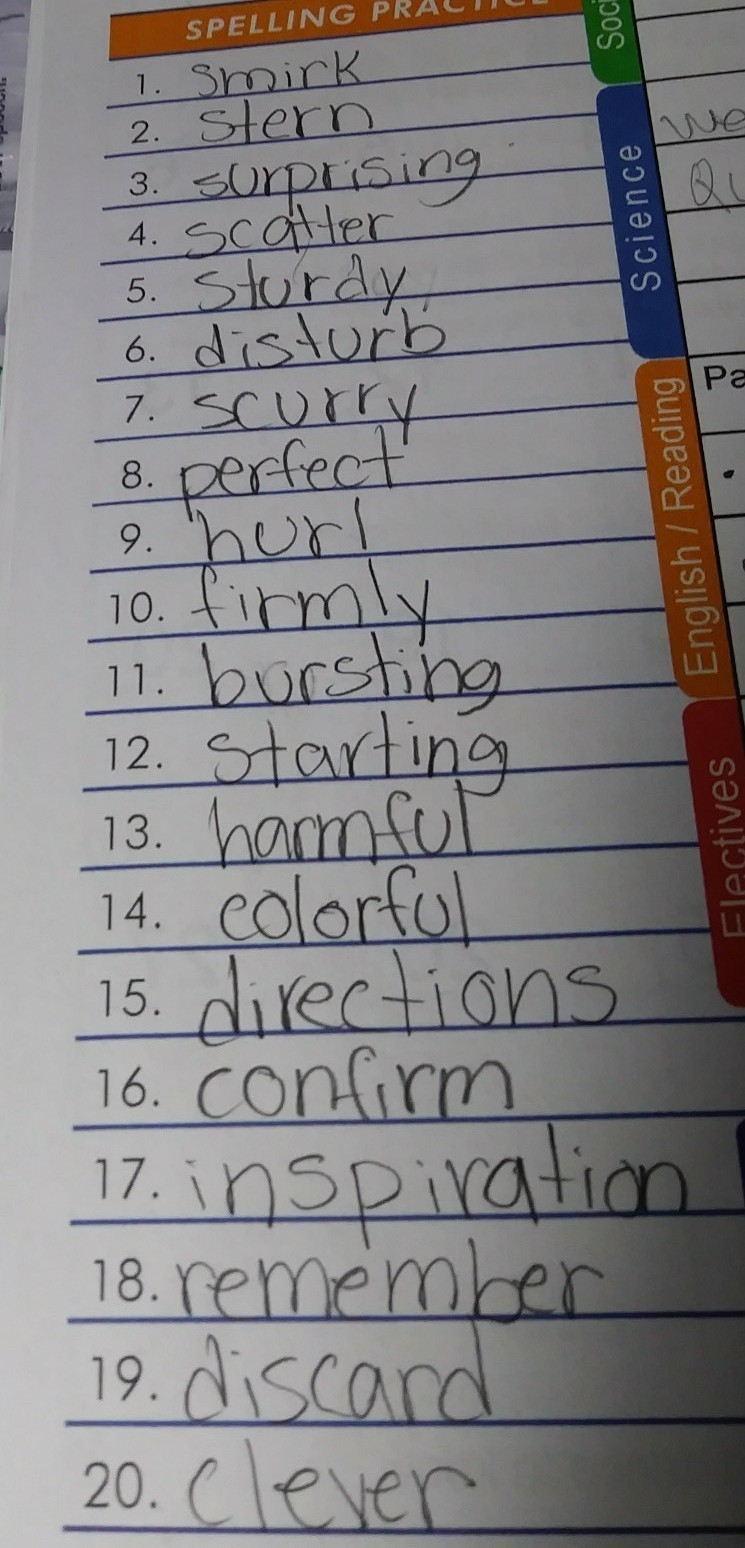 SPELLING PRACTICE
1. smirk
2. stern
3. surprising
4. scatter
5. sturdy
6. disturb
7. scurry
8. perfect
9. hurl
10. firmly
11. bursting
12. starting
13. harmful
14. colorful
15. directions
16. confirm
17. inspiration
18. remember
19. discard
20. clever
Soci
Science
English / Reading
Electives
We
Qu
Pa